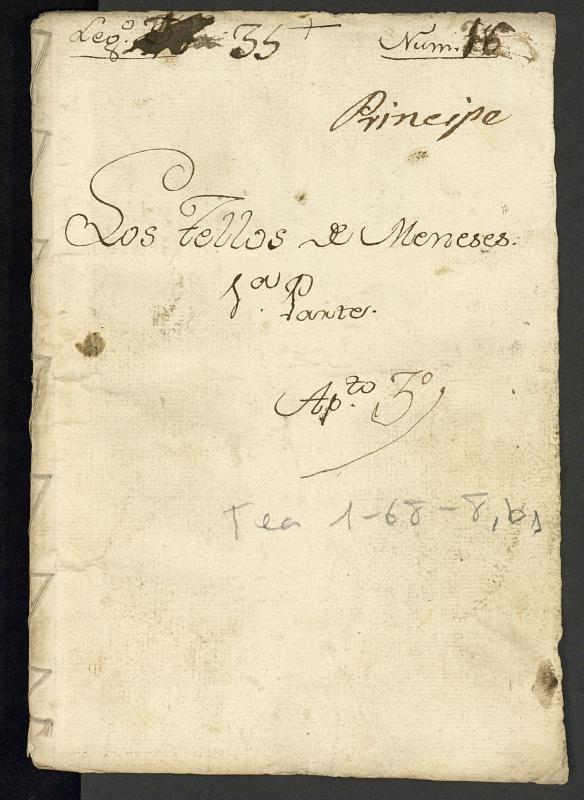 Leg.º 35 + Num. 16
Principe
Los Tellos de Meneses.
1.ª Parte.
Ap.to 3.º
Tea 1-68-8, b1